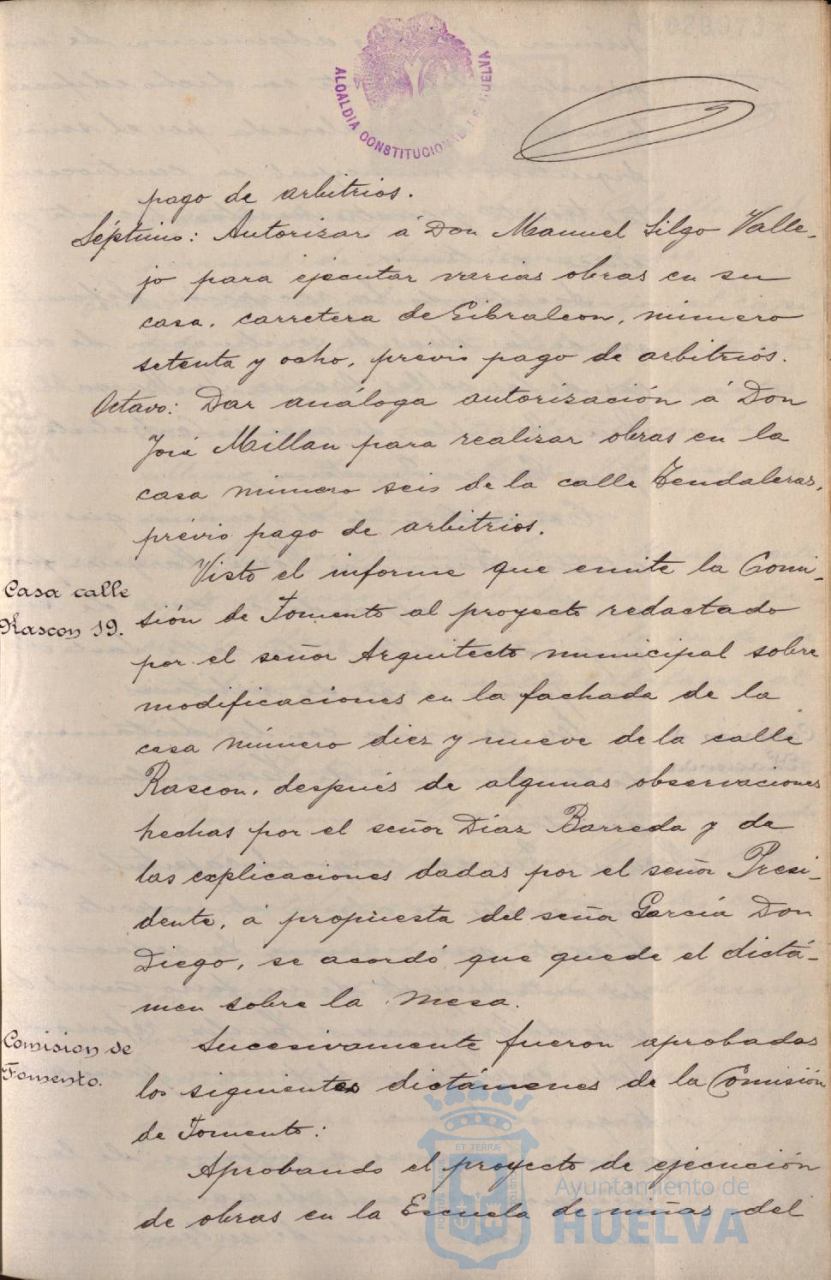 ALCALDIA CONSTITUCIONAL HUELVA
pago de arbitrios.
Séptimo: Autorizar á Don Manuel Silgo Valle-
jo para ejecutar varias obras en su
casa, carretera de Gibraleon, número
setenta y ocho, prévio pago de arbitrios.
Octavo: Dar análoga autorización á Don
José Millan para realizar obras en la
casa número seis de la calle Tendaleras,
prévio pago de arbitrios.
Casa calle
Rascon 19.
Visto el informe que emite la Comi-
sión de Fomento al proyecto redactado
por el señor Arquitecto municipal sobre
modificaciones en la fachada de la
casa número diez y nueve de la calle
Rascon, después de algunas observaciones
hechas por el señor Díaz Barreda y de
las explicaciones dadas por el señor Presi-
dente, á propuesta del señor García Don
Diego, se acordó que quede el dictá-
men sobre la mesa.
Comision de
Fomento.
Sucesivamente fueron aprobados
los siguientes dictámenes de la Comisión
de Fomento:
Aprobando el proyecto de ejecución
de obras en la Escuela de niñas del
Ayuntamiento de
HUELVA